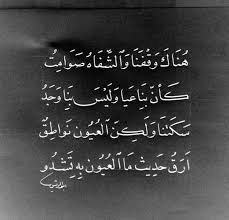 هُنَاكَ وَقَفْنَا وَالشِّفَاهُ صَوَامِتُ
كَأَنَّ بِنَا عِيا وَلَيْسَ بِنَا وَجْدُ
سَكَتْنَا وَلَكِنَّ الْعُيُونَ نَوَاطِقُ
أَرَقُّ حَدِيثٍ مَا الْعُيُونُ بِهِ تَشْدُو